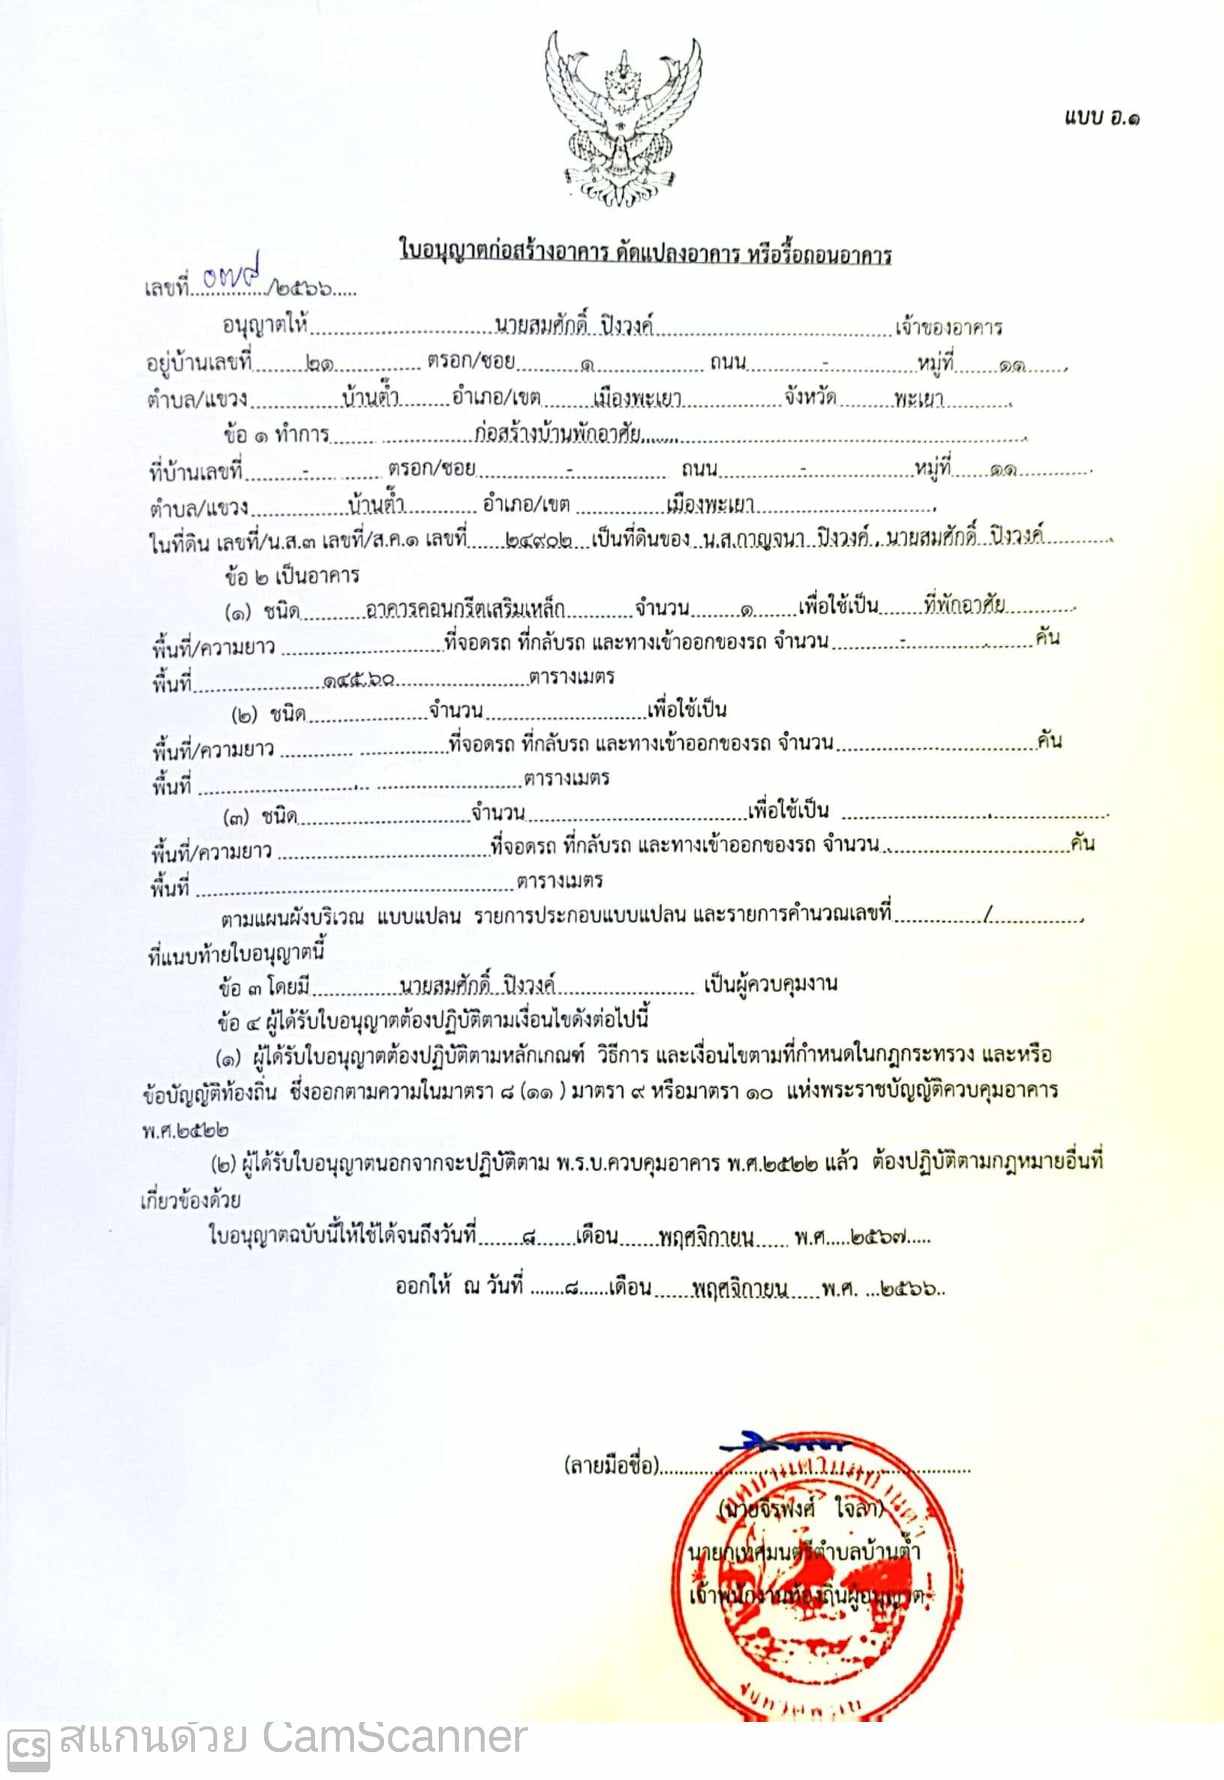 แบบ อ.๑
ใบอนุญาตก่อสร้างอาคาร ดัดแปลงอาคาร หรือรื้อถอนอาคาร
เลขที่ ๐๗๙/๒๕๖๖
อนุญาตให้ นายสมศักดิ์ ปิงวงค์ เจ้าของอาคาร
อยู่บ้านเลขที่ ๒๑ ตรอก/ซอย ๑ ถนน - หมู่ที่ ๑๑
ตำบล/แขวง บ้านต๊ำ อำเภอ/เขต เมืองพะเยา จังหวัด พะเยา
ข้อ ๑ ทำการ ก่อสร้างบ้านพักอาศัย
ที่บ้านเลขที่ - ตรอก/ซอย - ถนน - หมู่ที่ ๑๑
ตำบล/แขวง บ้านต๊ำ อำเภอ/เขต เมืองพะเยา
ในที่ดิน เลขที่/น.ส.๓ เลขที่/ส.ค.๑ เลขที่ ๒๔๙๐๒ เป็นที่ดินของ น.ส.กาญจนา ปิงวงค์ , นายสมศักดิ์ ปิงวงค์
ข้อ ๒ เป็นอาคาร
(๑) ชนิด อาคารคอนกรีตเสริมเหล็ก จำนวน ๑ เพื่อใช้เป็น ที่พักอาศัย
พื้นที่/ความยาว ที่จอดรถ ที่กลับรถ และทางเข้าออกของรถ จำนวน - คัน
พื้นที่ ๑๔๕.๖๐ ตารางเมตร
(๒) ชนิด จำนวน เพื่อใช้เป็น
พื้นที่/ความยาว ที่จอดรถ ที่กลับรถ และทางเข้าออกของรถ จำนวน คัน
พื้นที่ ตารางเมตร
(๓) ชนิด จำนวน เพื่อใช้เป็น
พื้นที่/ความยาว ที่จอดรถ ที่กลับรถ และทางเข้าออกของรถ จำนวน คัน
พื้นที่ ตารางเมตร
ตามแผนผังบริเวณ แบบแปลน รายการประกอบแบบแปลน และรายการคำนวณเลขที่ /
ที่แนบท้ายใบอนุญาตนี้
ข้อ ๓ โดยมี นายสมศักดิ์ ปิงวงค์ เป็นผู้ควบคุมงาน
ข้อ ๔ ผู้ได้รับใบอนุญาตต้องปฏิบัติตามเงื่อนไขดังต่อไปนี้
(๑) ผู้ได้รับใบอนุญาตต้องปฏิบัติตามหลักเกณฑ์ วิธีการ และเงื่อนไขตามที่กำหนดในกฎกระทรวง และหรือ
ข้อบัญญัติท้องถิ่น ซึ่งออกตามความในมาตรา ๘ (๑๑ ) มาตรา ๙ หรือมาตรา ๑๐ แห่งพระราชบัญญัติควบคุมอาคาร
พ.ศ.๒๕๒๒
(๒) ผู้ได้รับใบอนุญาตนอกจากจะปฏิบัติตาม พ.ร.บ.ควบคุมอาคาร พ.ศ.๒๕๒๒ แล้ว ต้องปฏิบัติตามกฎหมายอื่นที่
เกี่ยวข้องด้วย
ใบอนุญาตฉบับนี้ให้ใช้ได้จนถึงวันที่ ๘ เดือน พฤศจิกายน พ.ศ. ๒๕๖๗
ออกให้ ณ วันที่ ๘ เดือน พฤศจิกายน พ.ศ. ๒๕๖๖
(ลายมือชื่อ)
(นายจิรพงศ์ ใจลา)
นายกเทศมนตรีตำบลบ้านต๊ำ
เจ้าพนักงานท้องถิ่นผู้อนุญาต
CS สแกนด้วย CamScanner